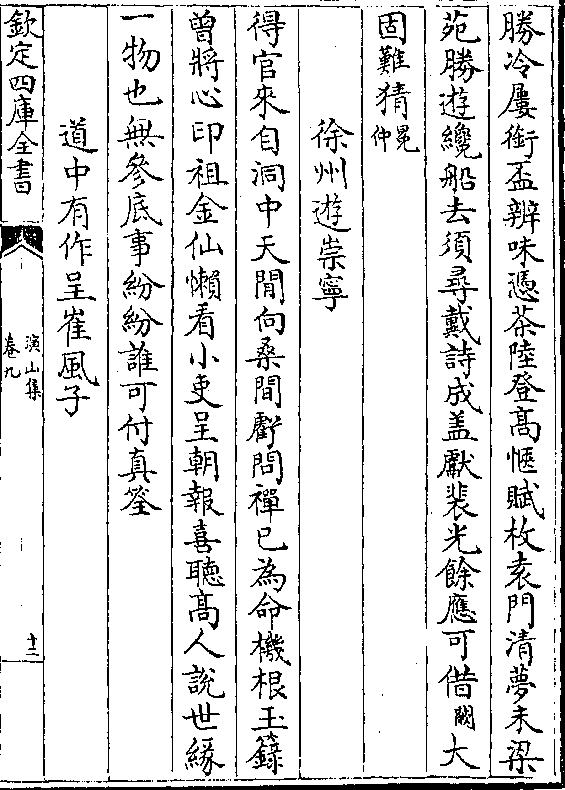 勝冷屢銜盃辨味慿茶陸登髙愜賦枚袁門清夢未梁
苑勝遊纔船去須尋戴詩成盖獻裴光餘應可借闕大
固難猜仲冕
徐州遊崇寧
得官來自洞中天閒向桑間虧問禪已為命機根玉籙
曾將心印祖金仙懶看小吏呈朝報喜聽髙人說世緣
一物也無參底事紛紛誰可付真筌
道中有作呈崔風子
欽定四庫全書
演山集
卷九
十二